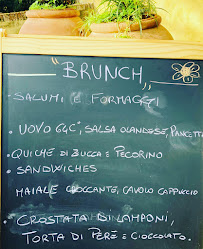 "BRUNCH"
• SALUMI E FORMAGGI
• UOVO 64C°, SALSA OLANDESE, PANCETTA
• QUICHE DI ZUCCA E PECORINO
• SANDWICHES
MAIALE CROCCANTE, CAVOLO CAPPUCCIO
• CROSTATA DI LAMPONI,
TORTA DI PERE E CIOCCOLATO.